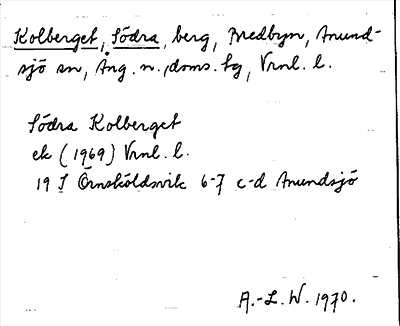 Kolberget, Södra, berg, Bredbyn, Anund-
sjö sn, Ång. n. doms. tg, Vrnl. l.
Södra Kolberget
ek (1969) Vrnl. l.
19 I Örnsköldsvik 6-7 c-d Anundsjö
A.-L. W. 1970.